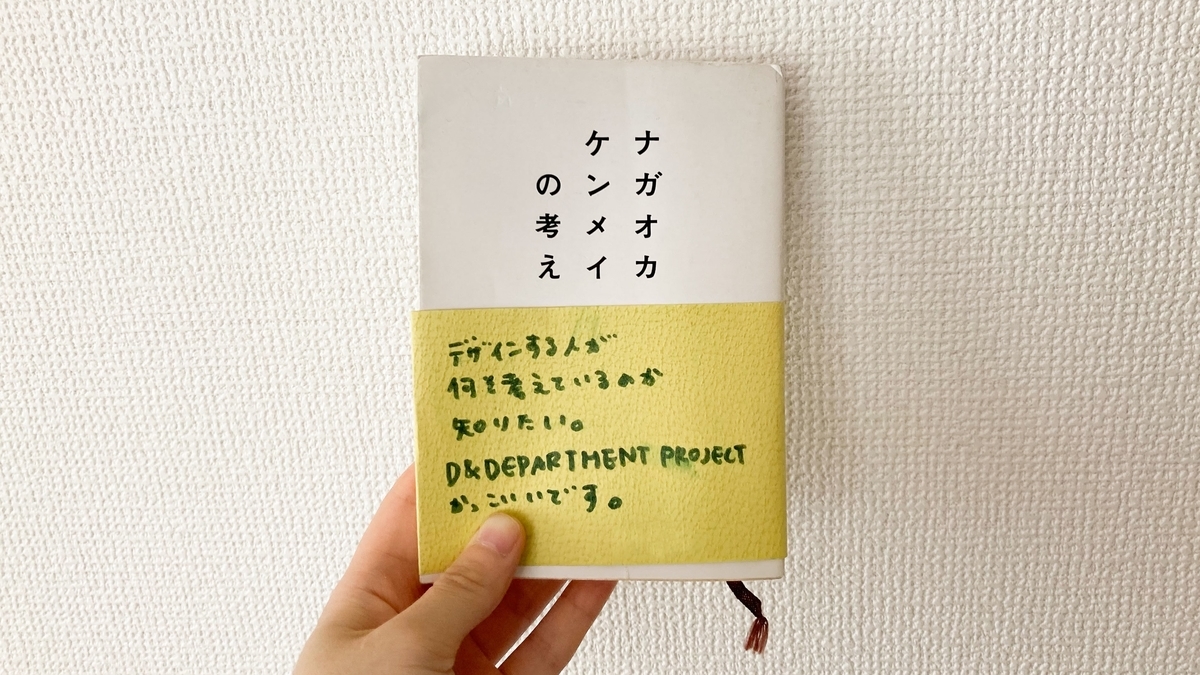 ナガオカ
ケンメイ
の考え
デザインする人が
何を考えているのか
知りたい。
D&DEPARTMENT PROJECT
かっこいいです。